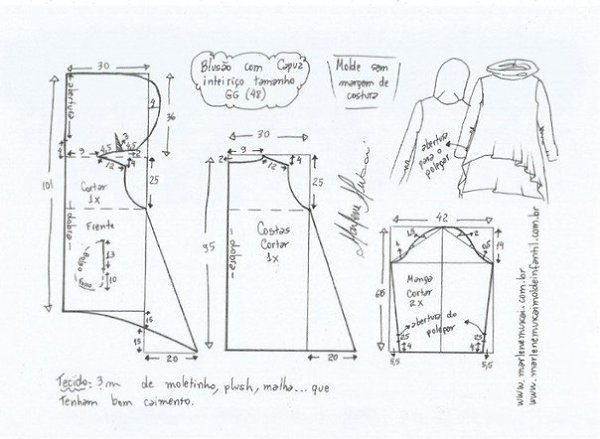 Blusão com Capuz
inteiriço tamanho
GG (48)
Molde sem
margem de
costura
30
abertura
4
36
3
9
4,5
4,5
2
12
4
4
101
25
Cortar
1x
dobra
Frente
Bolso
Forro
13
10
15
15
20
30
2
9
4
12
25
95
dobra
Costas
Cortar
1x
20
Marlene Mukai
abertura
para o
polegar
42
15
2
14
66
Manga
Cortar
2x
abertura do
polegar
25
25
4
4
5,5
5,5
www.marlenemukai.com.br
www.marlenemukaimoldeinfantil.com.br
Tecido: 3 m de moletinho, plush, malha... que
Tenham bom caimento.